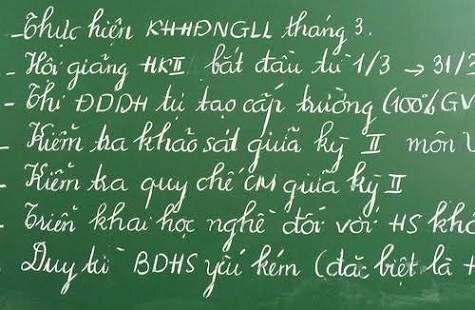 - Thực hiện KHHĐNGLL tháng 3.
- Hội giảng HKII bắt đầu từ 1/3 → 31/3
- Thi ĐDDH tự tạo cấp trường (100% GV
- Kiểm tra khảo sát giữa kỳ II môn
- Kiểm tra quy chế CM giữa kỳ II
- Triển khai học nghề đối với HS
- Duy trì BDHS yếu kém (đặc biệt là